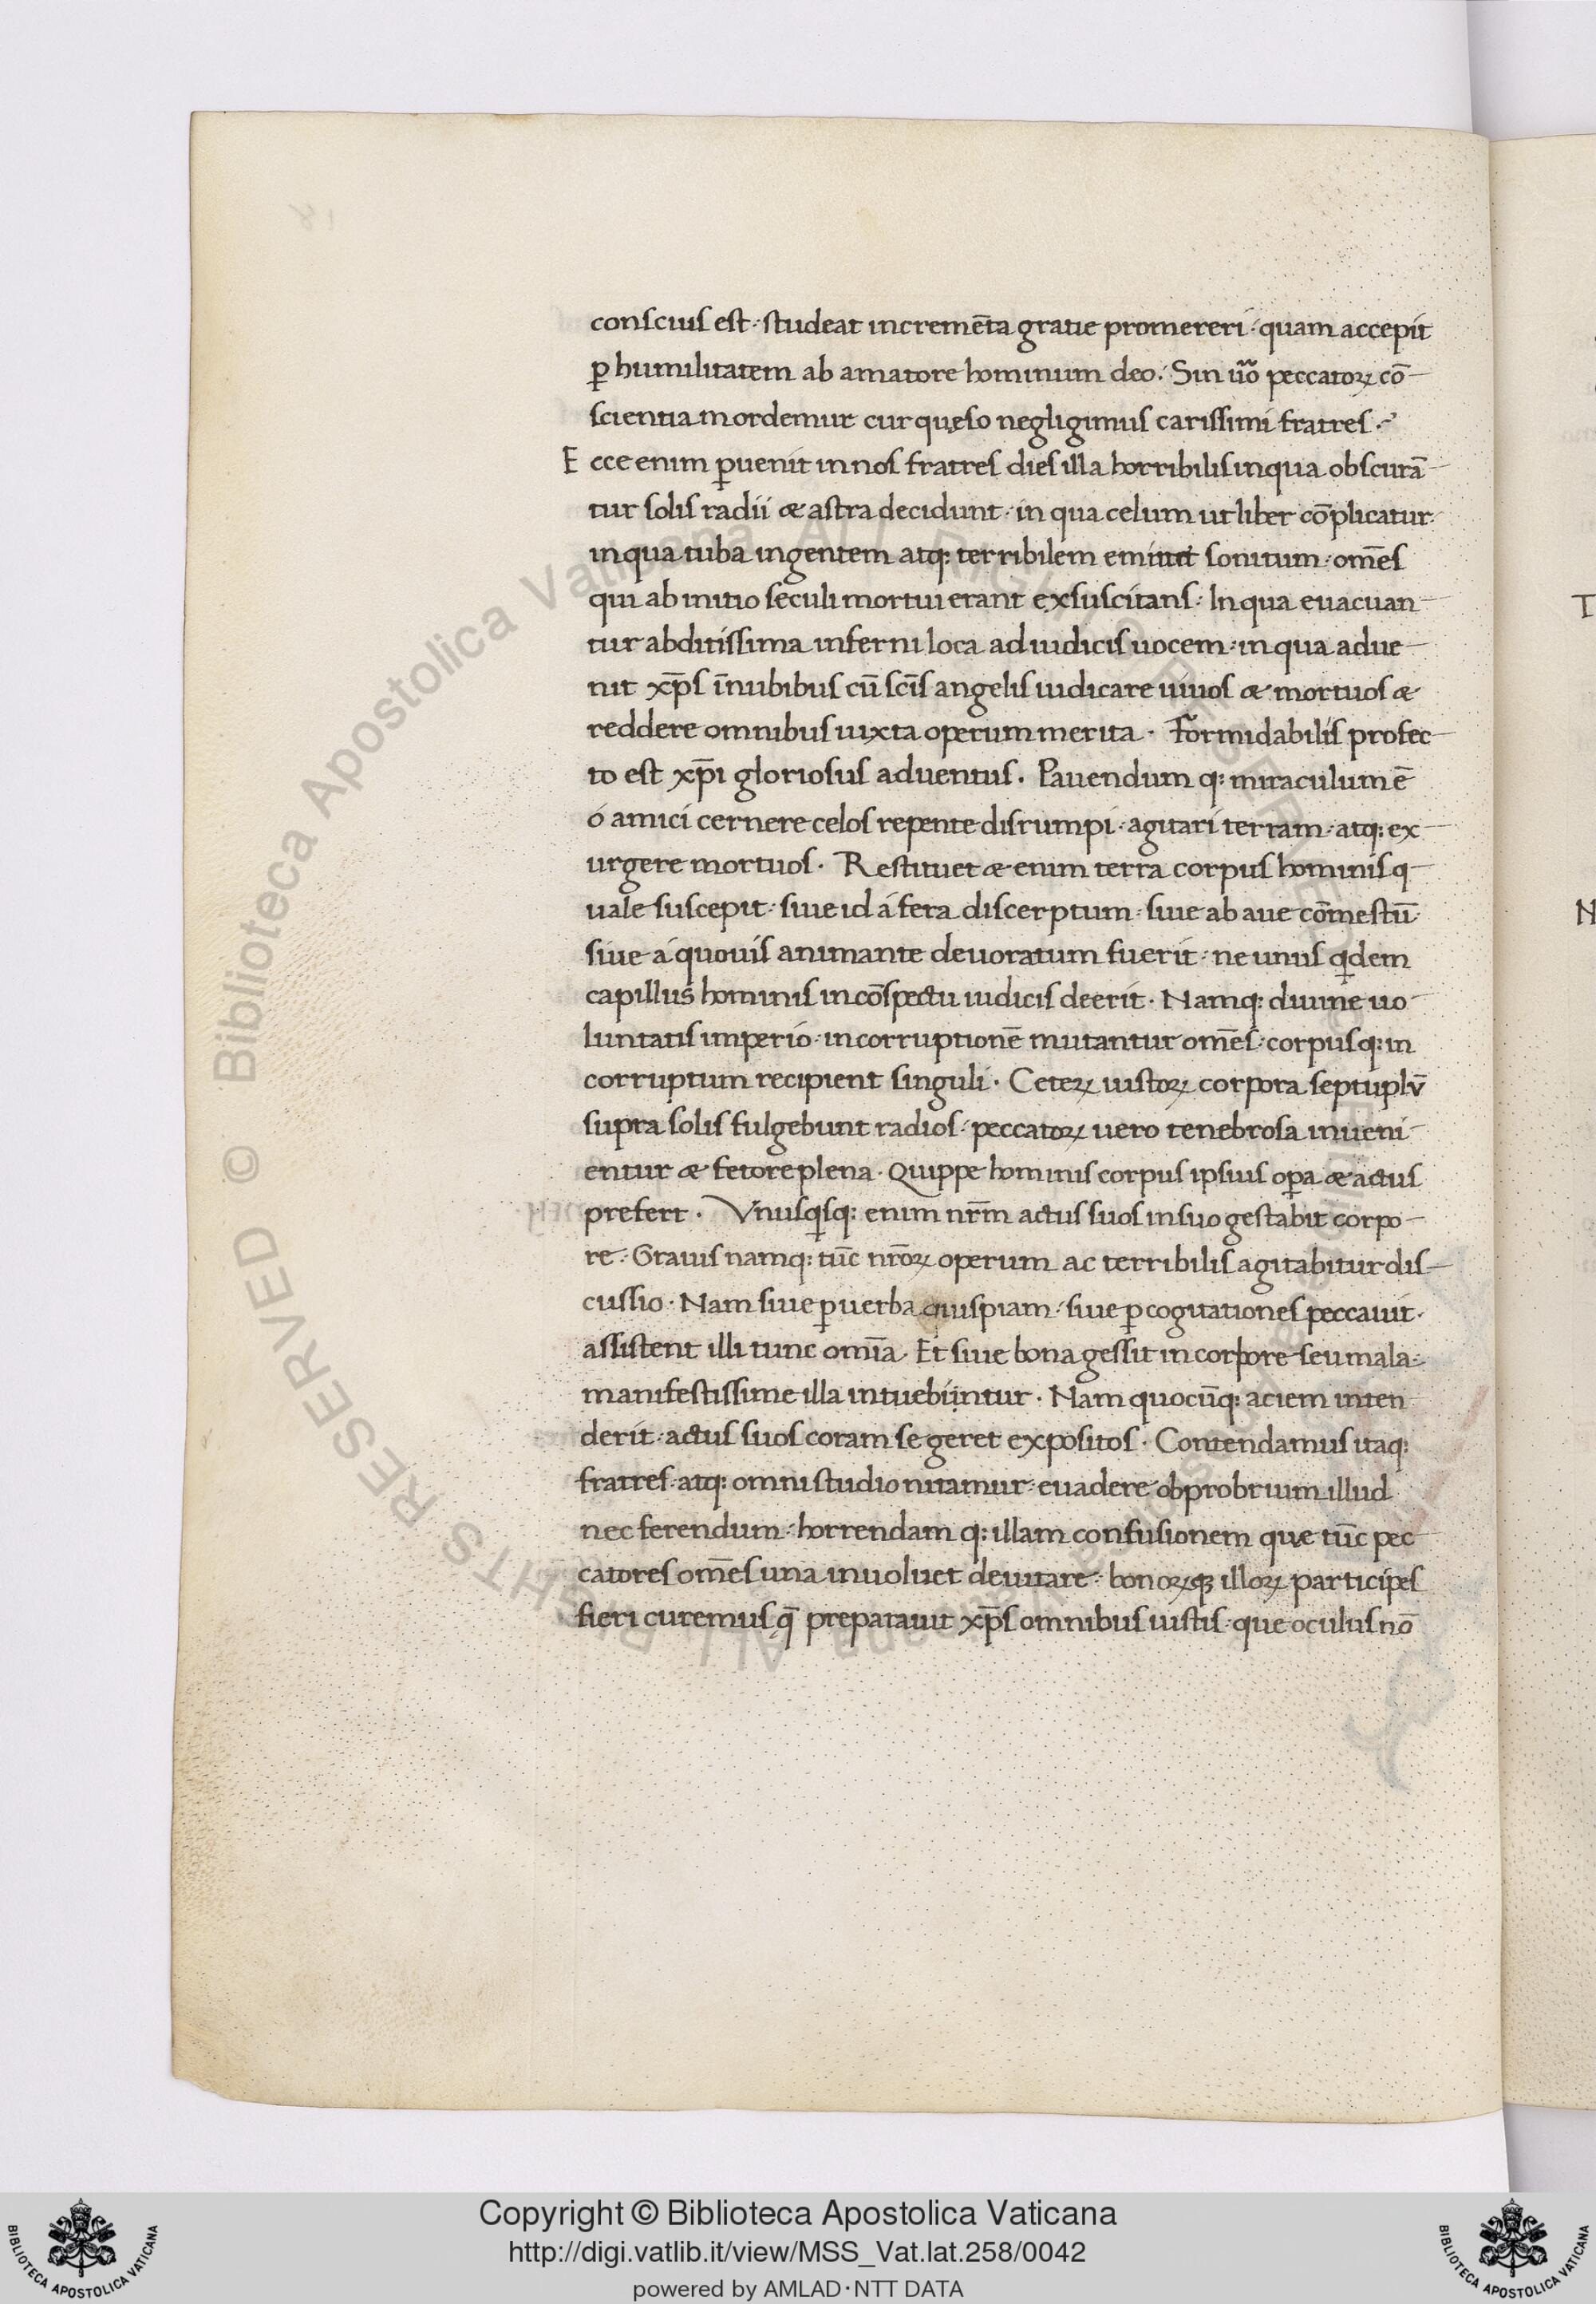 conscius est· studeat incremēta gratie promereri· quam accepit
ꝑ humilitatem ab amatore hominum deo. Sin ũo peccatoꝝ cō
scientia mordemur cur quęso negligimus carissimi fratres·
Ecce enim ꝑuenit in nos fratres dies illa horribilis in qua obscurā
tur solis radii & astra decidunt· in qua celum ut liber cōplicatur·
in qua tuba ingentem atq: terribilem emittet sonitum· om̄es
qui ab initio seculi mortui erant exsuscitans· In qua euacuan
tur abditissima inferni loca ad iudicis uocem· in qua adue
nit xp̄s īnubibus cū scīs angelis iudicare uiuos & mortuos &
reddere omnibus iuxta operum merita· Formidabilis profec
to est xp̄i gloriosus aduentus. Pauendum q: miraculum ē
ó amici cernere celos repente disrumpi· agitari terram· atq: ex
urgere mortuos· Restituet & enim terra corpus hominis q
uale suscepit· siue id á fera discerptum· siue ab aue cōmestū·
siue á quouis animante deuoratum fuerit· ne unus qͥdem
capillus hominis in cōspectu iudicis deerit· Namq: diuine uo
luntatis imperio· incorruptionē mutantur om̄es· corpusq: in
corruptum recipient singuli· Ceteꝝ iustoꝝ corpora septuplū
supra solis fulgebunt radios· peccatoꝝ uero tenebrosa inueni
entur & fetore plena· Quippe hominis corpus ipsius oꝑa & actus
prefert· Vnusqͥsq: enim nr̄m actus suos in suo gestabit corpo
re· Grauis namq: tūc nr̄oꝝ operum ac terribilis agitabitur dis
cussio· Nam siue ꝑ uerba quispiam· siue ꝑ cogitationes peccauit·
assistent illi tunc omīa· Et siue bona gessit in corpore seu mala·
manifestissime illa intuebuntur· Nam quocūq: aciem inten
derit· actus suos coram se geret expositos· Contendamus itaq:
fratres· atq: omni studio nitamur· euadere obprobrium illud
nec ferendum· horrendam q: illam confusionem que tūc pec
catores om̄es una inuoluet deuitare· bonoꝝqꝫ illoꝝ participes
fieri curemus q̄ preparauit xp̄s omnibus iustis· que oculus nō
T
N
© Biblioteca Apostolica Vaticana ALL RIGHTS RESERVED
Copyright © Biblioteca Apostolica Vaticana
http://digi.vatlib.it/view/MSS_Vat.lat.258/0042
powered by AMLAD·NTT DATA
BIBLIOTECA APOSTOLICA VATICANA
BIBLIOTECA APOSTOLICA VATICANA